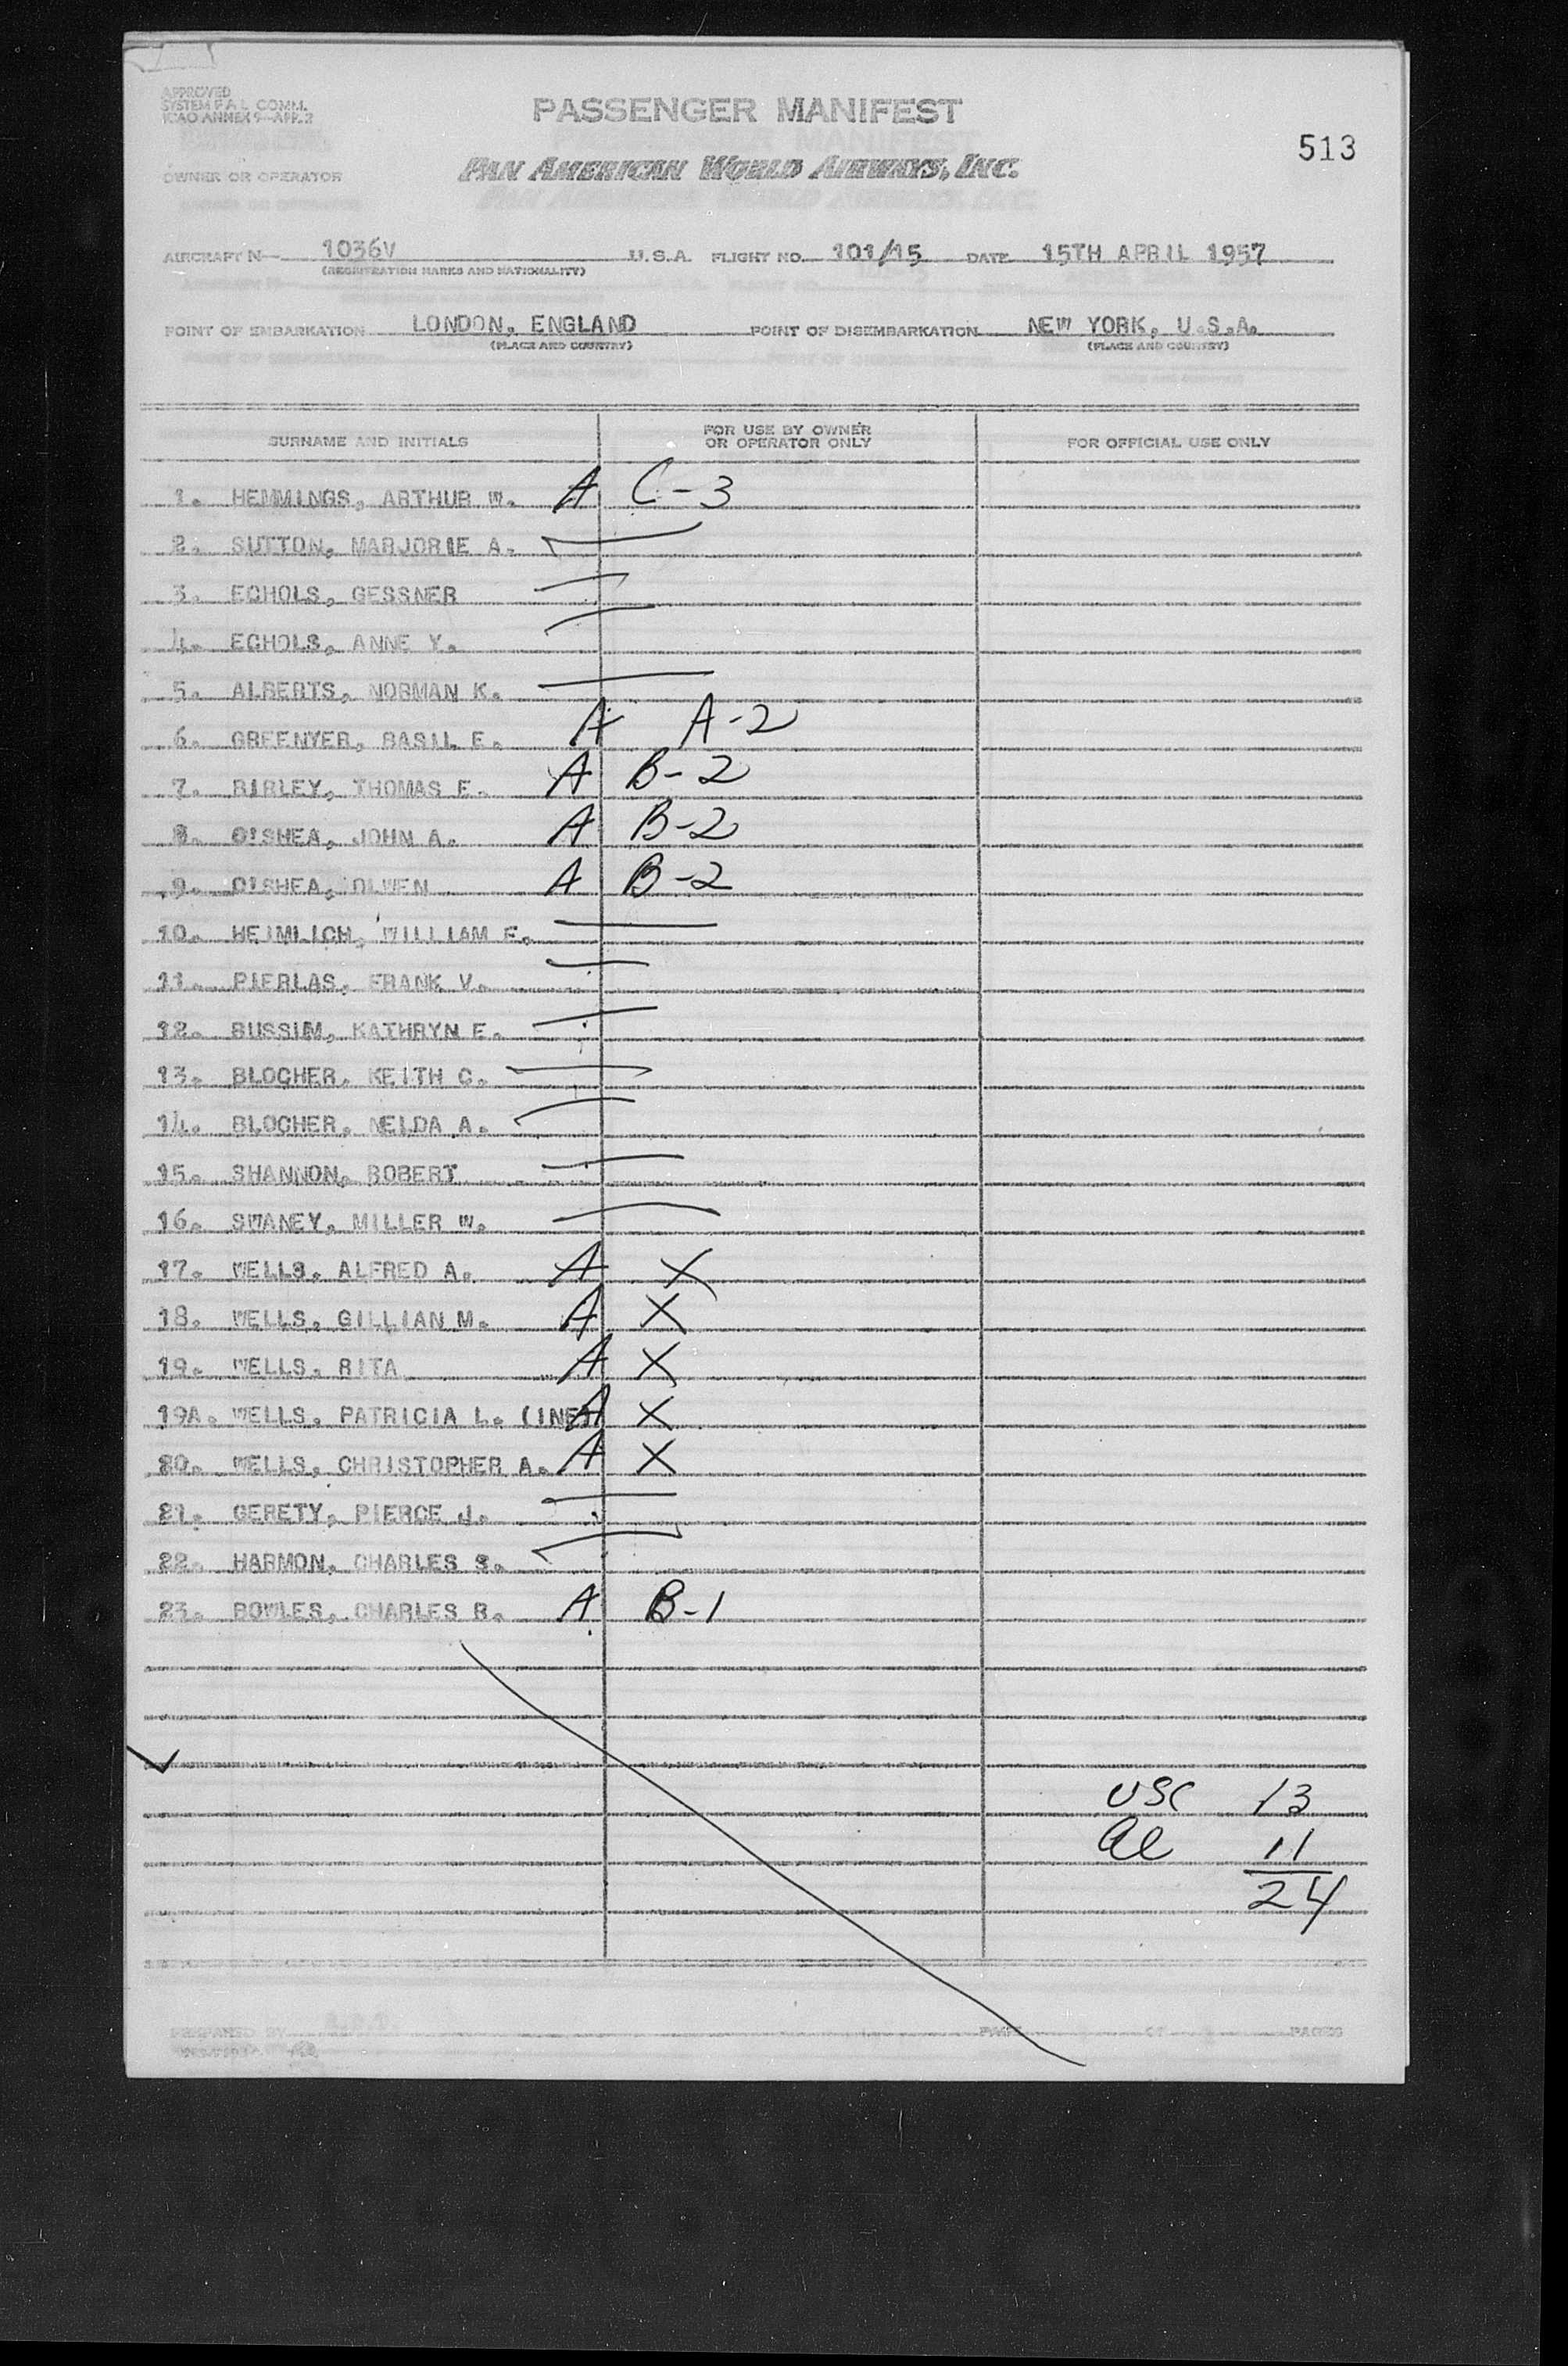 APPROVED
SYSTEM F A L COMM.
ICAO ANNEX 9—APP. 2
PASSENGER MANIFEST
513
PAN AMERICAN WORLD AIRWAYS, INC.
OWNER OR OPERATOR
AIRCRAFT N— 1036V U.S.A. FLIGHT NO. 101/15 DATE 15TH APRIL 1957
(REGISTRATION MARKS AND NATIONALITY)
POINT OF EMBARKATION LONDON, ENGLAND POINT OF DISEMBARKATION NEW YORK, U.S.A.
(PLACE AND COUNTRY) (PLACE AND COUNTRY)
SURNAME AND INITIALS FOR USE BY OWNER OR OPERATOR ONLY FOR OFFICIAL USE ONLY
1. HEMMINGS, ARTHUR W. A C-3
2. SUTTON, MARJORIE A.
3. ECHOLS, GESSNER
4. ECHOLS, ANNE Y.
5. ALBERTS, NORMAN K.
6. GREENYER, BASIL E. A A-2
7. BIRLEY, THOMAS E. A B-2
8. O'SHEA, JOHN A. A B-2
9. O'SHEA, OLWEN A B-2
10. HEIMLICH, WILLIAM F.
11. PIERLAS, FRANK V.
12. BUSSIM, KATHRYN E.
13. BLOCHER, KEITH C.
14. BLOCHER, NELDA A.
15. SHANNON, ROBERT
16. SWANEY, MILLER W.
17. WELLS, ALFRED A. A X
18. WELLS, GILLIAN M. A X
19. WELLS, RITA A X
19A. WELLS, PATRICIA L. (INF) A X
20. WELLS, CHRISTOPHER A. A X
21. GERETY, PIERCE J.
22. HARMON, CHARLES S.
23. BOWLES, CHARLES R. A B-1
USC 13
al 11
24
PREPARED BY PAGE OF PAGES